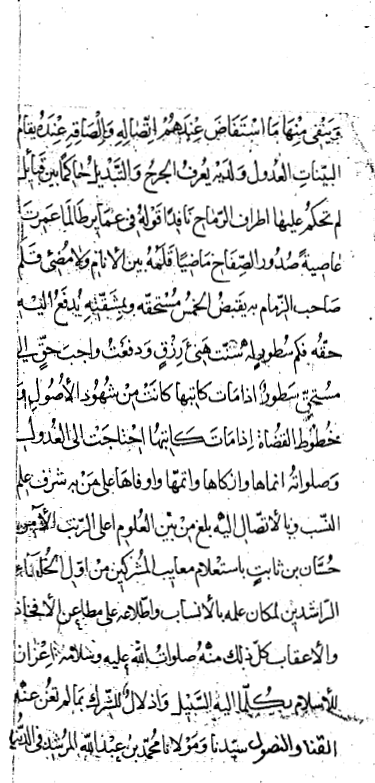 وينفي منها ما استفاض عندهم اتصاله والصاقه عنده يقام
البينات العدول ولديه يعرف الجرح والتبديل حاكما بين قبائل
لم تحكم عليها اطراف الرماح نافذا قوله في عمائر طالما عمرت
عاصية صدور الصفاح ماضيا قلمه بين الانام ولا مضى قلم
صاحب الزمام به يقبض الخمس مستحقه وبمشقته يدفع اليه
حقه فكم سطور له سنت هنئ رزق ودفعت واجب حق الى
مستحق سطور اذا مات كاتبها كانت من شهود الأصول و
خطوط القضاة اذا مات كاتبها احتاجت الى العدول
وصلواته انماها وازكاها واتمها واوفاها على من به شرف علم
النسب وبالاتصال اليه بلغ من بين العلوم اعلى الرتب الآمر
حسان بن ثابت باستعلام معايب المشركين من اول الخلفاء
الراشدين لمكان علمه بالأنساب واطلاعه على مطاعن الافخاذ
والاعقاب كل ذلك منه صلوات الله عليه وسلامه اعزاز
للأسلام بكل ما اليه السبيل واذلال للشرك بما لم تغن عنه
القنا والنصول سيدنا ومولانا محمد بن عبد الله المرشد في الدنيا